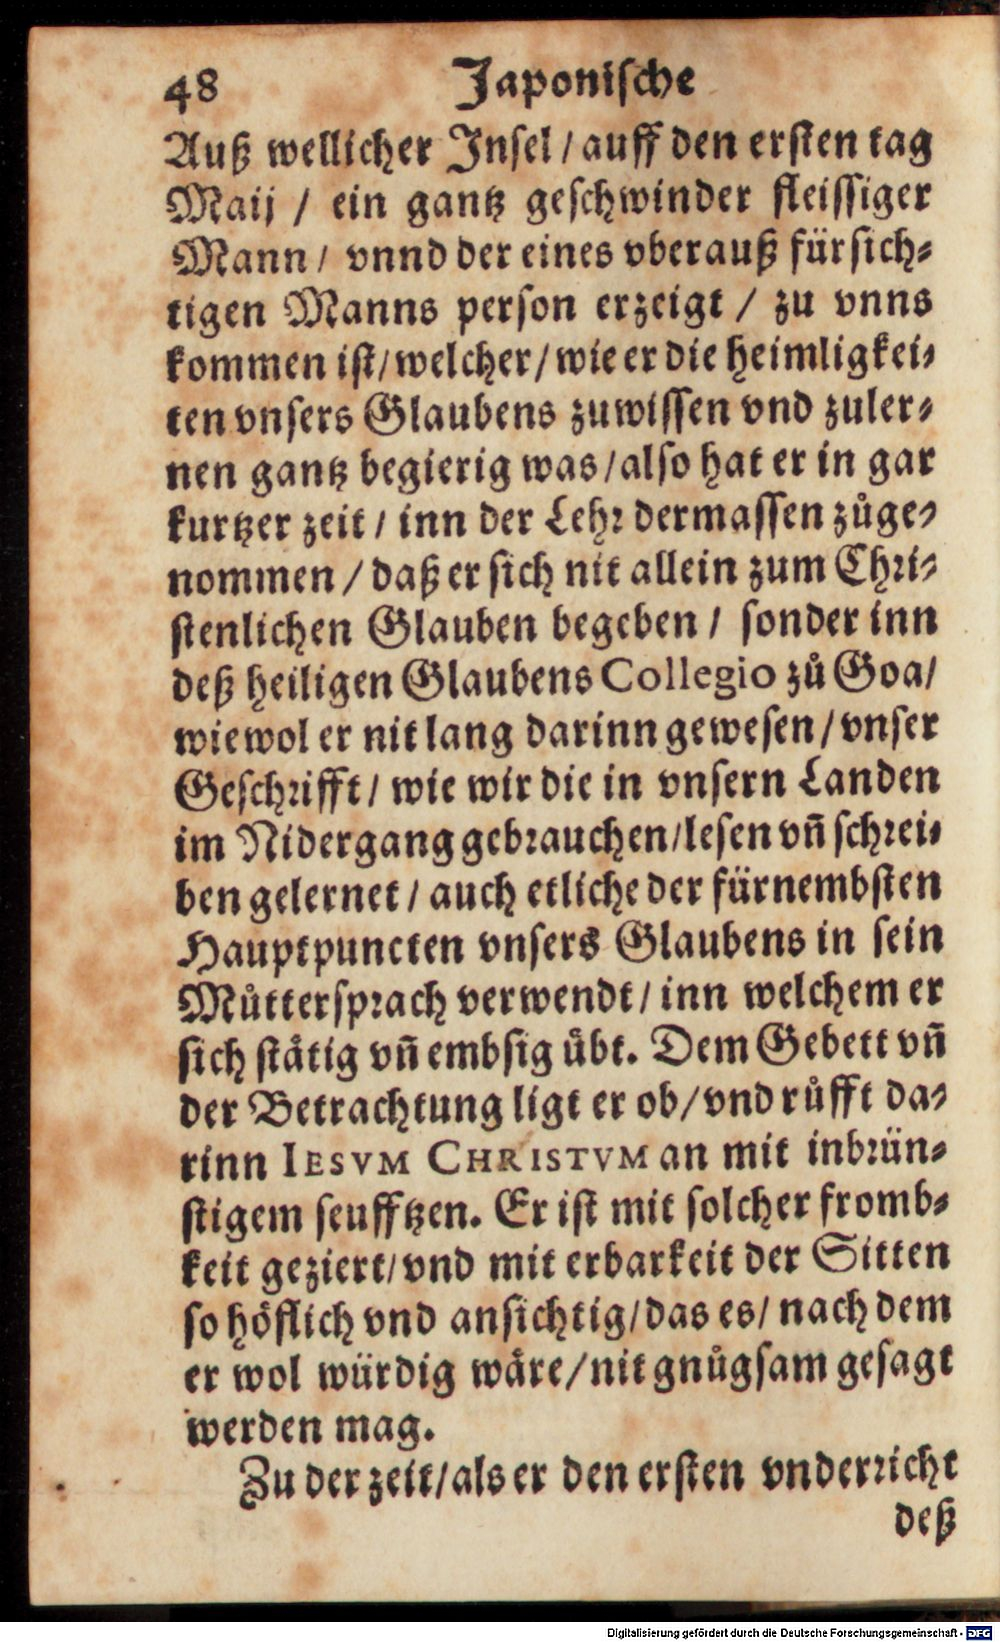 48 Japonische
Auß wellicher Insel / auff den ersten tag
Maij / ein gantz geschwinder fleissiger
Mann / vnnd der eines vberauß fürsich⸗
tigen Manns person erzeigt / zu vnns
kommen ist / welcher / wie er die heimligkei⸗
ten vnsers Glaubens zuwissen vnd zuler⸗
nen gantz begierig was / also hat er in gar
kurtzer zeit / inn der Lehr dermassen zůge⸗
nommen / daß er sich nit allein zum Chri⸗
stenlichen Glauben begeben / sonder inn
deß heiligen Glaubens Collegio zů Goa /
wiewol er nit lang darinn gewesen / vnser
Geschrifft / wie wir die in vnsern Landen
im Nidergang gebrauchen / lesen vn̄ schrei⸗
ben gelernet / auch etliche der fürnembsten
Hauptpuncten vnsers Glaubens in sein
Můttersprach verwendt / inn welchem er
sich stätig vn̄ embsig übt. Dem Gebett vn̄
der Betrachtung ligt er ob / vnd růfft da⸗
rinn IESVM CHRISTVM an mit inbrün⸗
stigem seufftzen. Er ist mit solcher fromb⸗
keit geziert / vnd mit erbarkeit der Sitten
so höflich vnd ansichtig / das es / nach dem
er wol würdig wäre / nit gnůgsam gesagt
werden mag.
Zu der zeit / als er den ersten vnderricht
deß
Digitalisierung gefördert durch die Deutsche Forschungsgemeinschaft - DFG